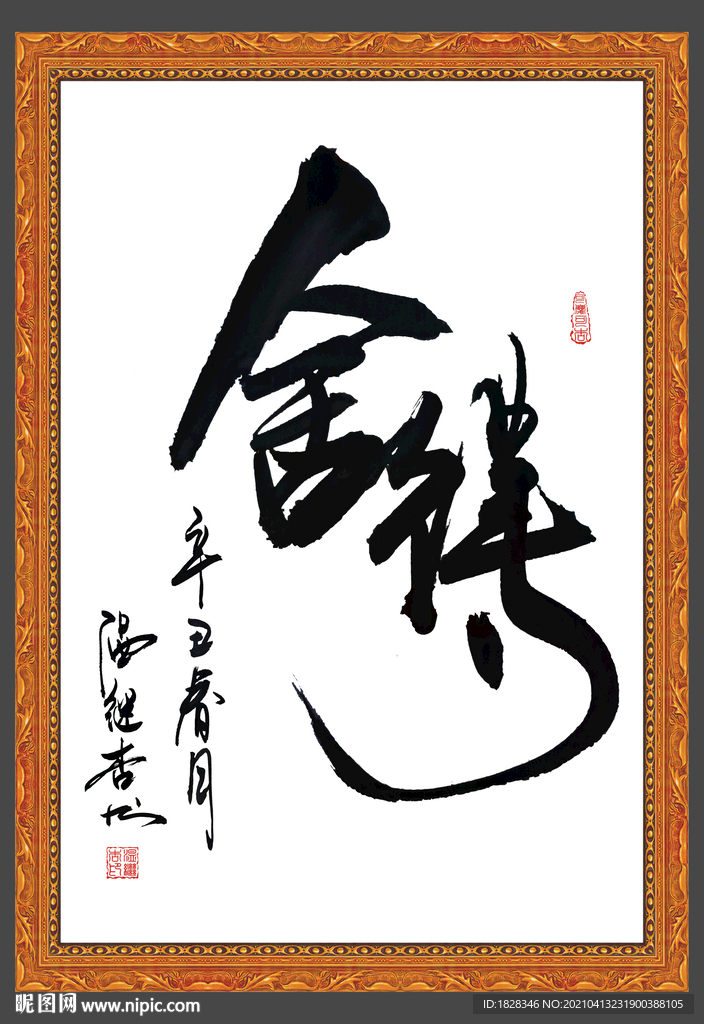 舍得
辛丑春月
温继杏
昵图网 www.nipic.com
ID:1828346 NO:20210413231900388105